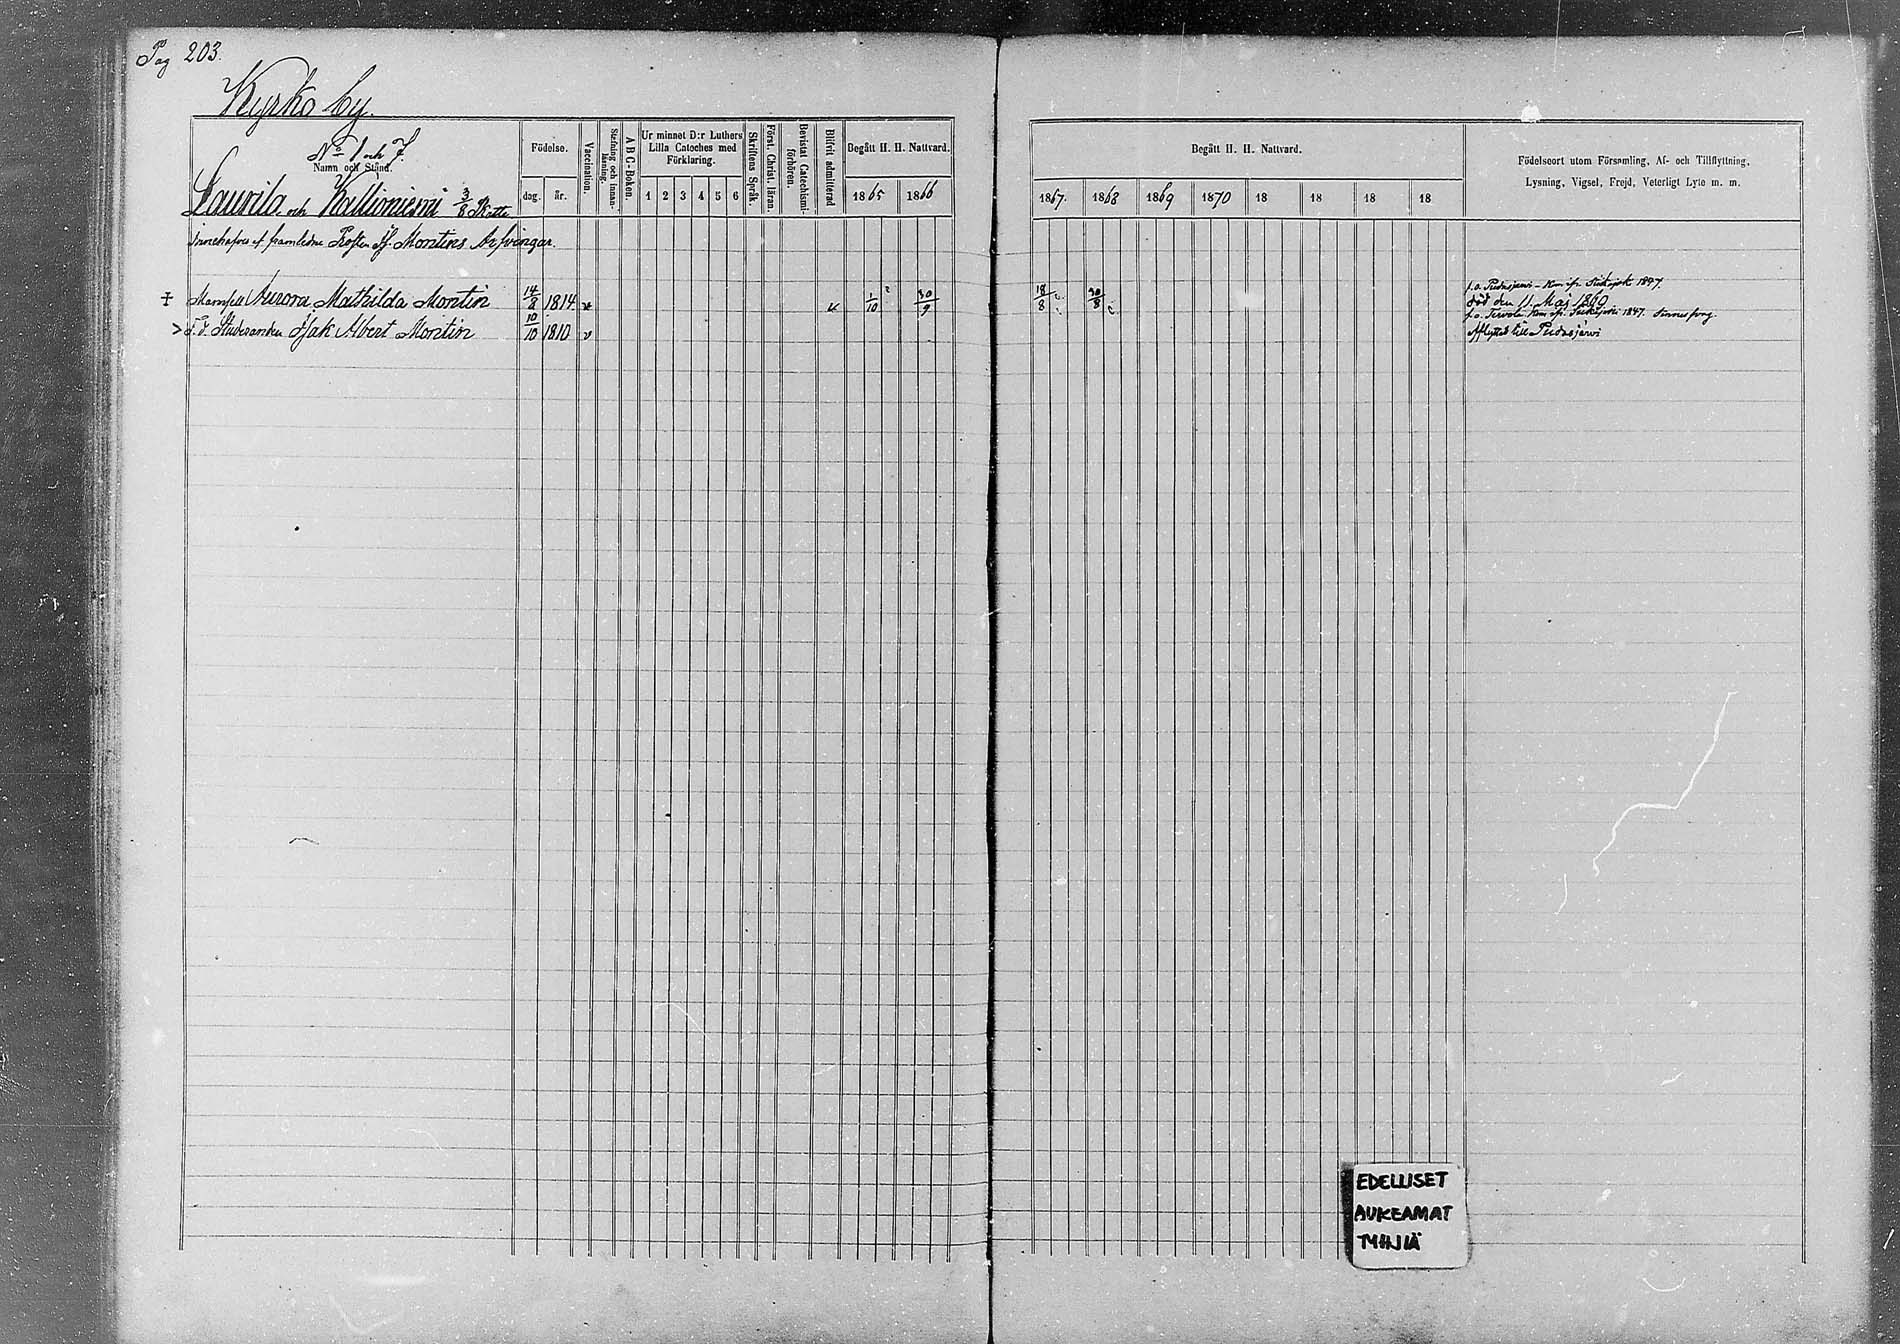 Pag 203.
Kyrko by.
No 1 och 7.
Namn och Stånd.
Laurila och Kallioniemi 3/8 Mantl
Födelse.
dag. år.
Vaccination.
Stafning och innanläsning.
A B C-Boken.
Ur minnet D:r Luthers
Lilla Cateches med
Förklaring.
1 2 3 4 5 6
Skriftens Språk.
Först. Christ. läran.
Bevistat Catechismiförhören.
Blifvit admitterad
Begått H. H. Nattvard.
1865 1866
innehafves af framledne Prosten Is. Montins Arfvingar.
‡ Mamsell Aurora Mathilda Montin 14/8 1814 v v 1/10 30/9
> F.d. Studeranden Isak Albert Montin 10/10 1810 v
Begått H. H. Nattvard.
1867. 1868 1869 1870 18 18 18 18
Födelseort utom Församling, Af- och Tillflyttning,
Lysning, Vigsel, Frejd, Veterligt Lyte m. m.
18/8 30/8
f. o. Pudasjärvi - Kom ifr. 1847.
död den 11 Maj 1869
f. o. Tervola Kom ifr. 1847.
Afflyttad till Pudasjärvi
EDELLISET
AUKEAMAT
TYHJIÄ